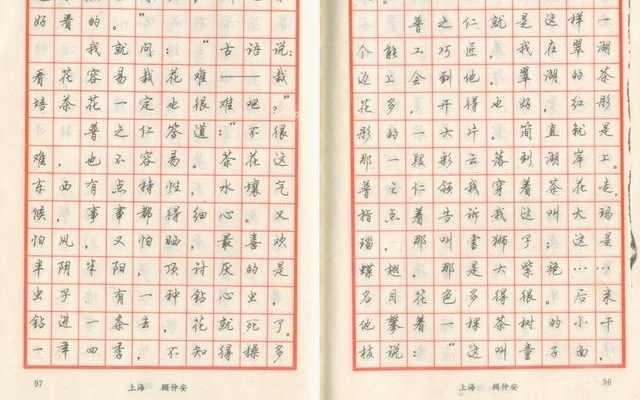 普之仁就是这样一
个能工巧匠，我在翠湖
边上会到他。翠湖的茶
花多，开得也好，红彤
彤的一大片，简直就是
那一段彩云落到湖岸上。
普之仁领我穿着茶花走，
指点着告诉我这叫大玛
瑙，那叫雪狮子；这是
蝶翅，那是大紫袍……
名目花色多得很。后来
他攀着一棵茶树的小干
枝说：“这叫童子面，
上海 顾仲安
96
好看的。”
我就问：“古语说：
看花容易栽花难——栽
培茶花一定也很难吧？”
普之仁答道：“不很
难，也不容易。茶花这
东西有点特性，水壤气
候，事事都得细心。又
怕风，又怕晒，最喜欢
半阴半阳，顶讨厌的是
虫子。有一种钻心虫，
钻进一条去，花就死了。
一年四季，不知得操多
97
上海 顾仲安